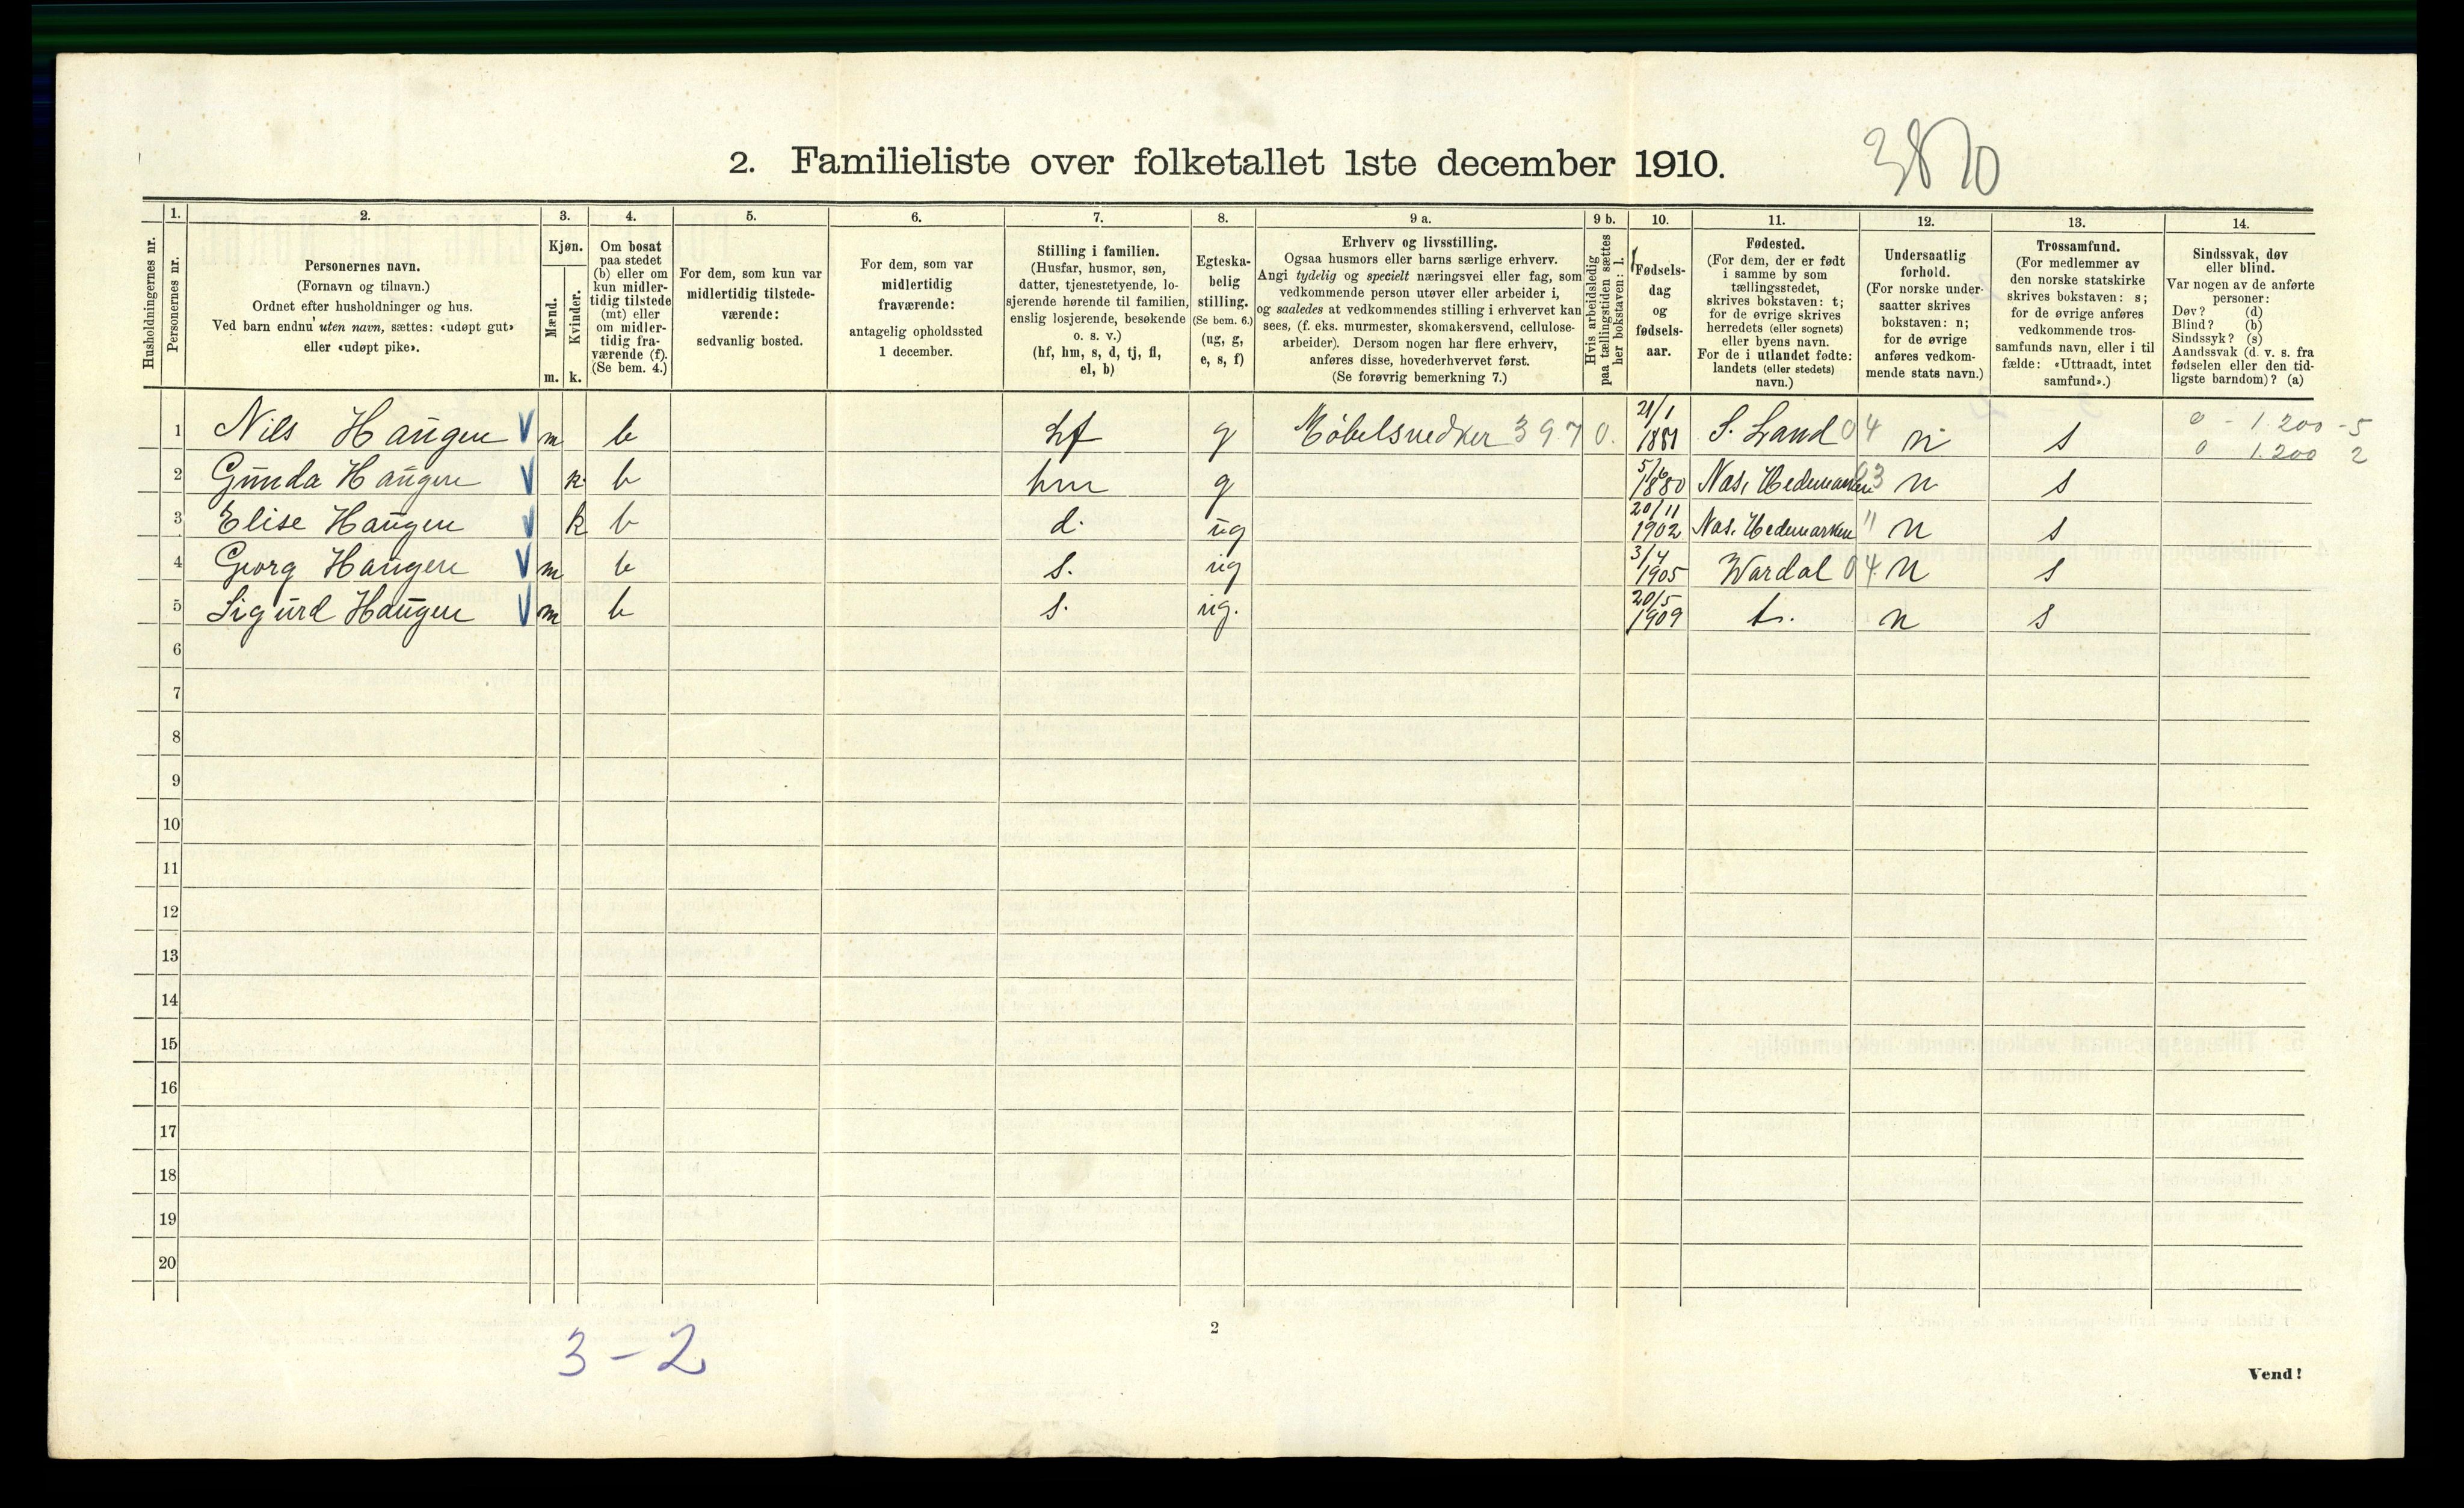 2. Familieliste over folketallet 1ste december 1910.
3870
Husholdningernes nr.
1.
Personernes nr.
2.
Personernes navn.
(Fornavn og tilnavn.)
Ordnet efter husholdninger og hus.
Ved barn endnu uten navn, sættes: «udøpt gut»
eller «udøpt pike».
3.
Kjøn.
Mænd.
Kvinder.
m. k.
4.
Om bosat
paa stedet
(b) eller om
kun midler-
tidig tilstede
(mt) eller
om midler-
tidig fra-
værende (f).
(Se bem. 4.)
5.
For dem, som kun var
midlertidig tilstede-
værende:
sedvanlig bosted.
6.
For dem, som var
midlertidig
fraværende:
antagelig opholdssted
1 december.
7.
Stilling i familien.
(Husfar, husmor, søn,
datter, tjenestetyende, lo-
sjerende hørende til familien,
enslig losjerende, besøkende
o. s. v.)
(hf, hm, s, d, tj, fl,
el, b)
8.
Egteska-
belig
stilling.
(Se bem. 6.)
(ug, g,
e, s, f)
9 a.
Erhverv og livsstilling.
Ogsaa husmors eller barns særlige erhverv.
Angi tydelig og specielt næringsvei eller fag, som
vedkommende person utøver eller arbeider i,
og saaledes at vedkommendes stilling i erhvervet kan
sees, (f. eks. murmester, skomakersvend, cellulose-
arbeider). Dersom nogen har flere erhverv,
anføres disse, hovederhvervet først.
(Se forøvrig bemerkning 7.)
9 b.
Hvis arbeidsledig
paa tællingstiden sættes
her bokstaven: l.
10.
Fødsels-
dag
og
fødsels-
aar.
11.
Fødested.
(For dem, der er født
i samme by som
tællingsstedet,
skrives bokstaven: t;
for de øvrige skrives
herredets (eller sognets)
eller byens navn.
For de i utlandet fødte:
landets (eller stedets)
navn.)
12.
Undersaatlig
forhold.
(For norske under-
saatter skrives
bokstaven: n;
for de øvrige
anføres vedkom-
mende stats navn.)
13.
Trossamfund.
(For medlemmer av
den norske statskirke
skrives bokstaven: s;
for de øvrige anføres
vedkommende tros-
samfunds navn, eller i til
fælde: «Uttraadt, intet
samfund».)
14.
Sindssvak, døv
eller blind.
Var nogen av de anførte
personer:
Døv? (d)
Blind? (b)
Sindssyk? (s)
Aandssvak (d. v. s. fra
fødselen eller den tid-
ligste barndom)? (a)
1 Nils Haugen V m b hf g Møbelsnedker 397 0. 21/1 1881 S. Land 04 n s 0 - 1.200 - 5
0 1.200 2
2 Gunda Haugen V k b hm g 5/6 1880 Nas, Hedemarken 03 n s
3 Elise Haugen V k b d. ug 20/11 1902 Nas. Hedemarken " n s
4 Georg Haugen V m b s. ug 3/4 1905 Wardal 04 n s
5 Sigurd Haugen V m b s. ug. 20/5 1909 t. n s
6
7
8
9
10
11
12
13
14
15
16
17
18
19
20
3 - 2
2
Vend!